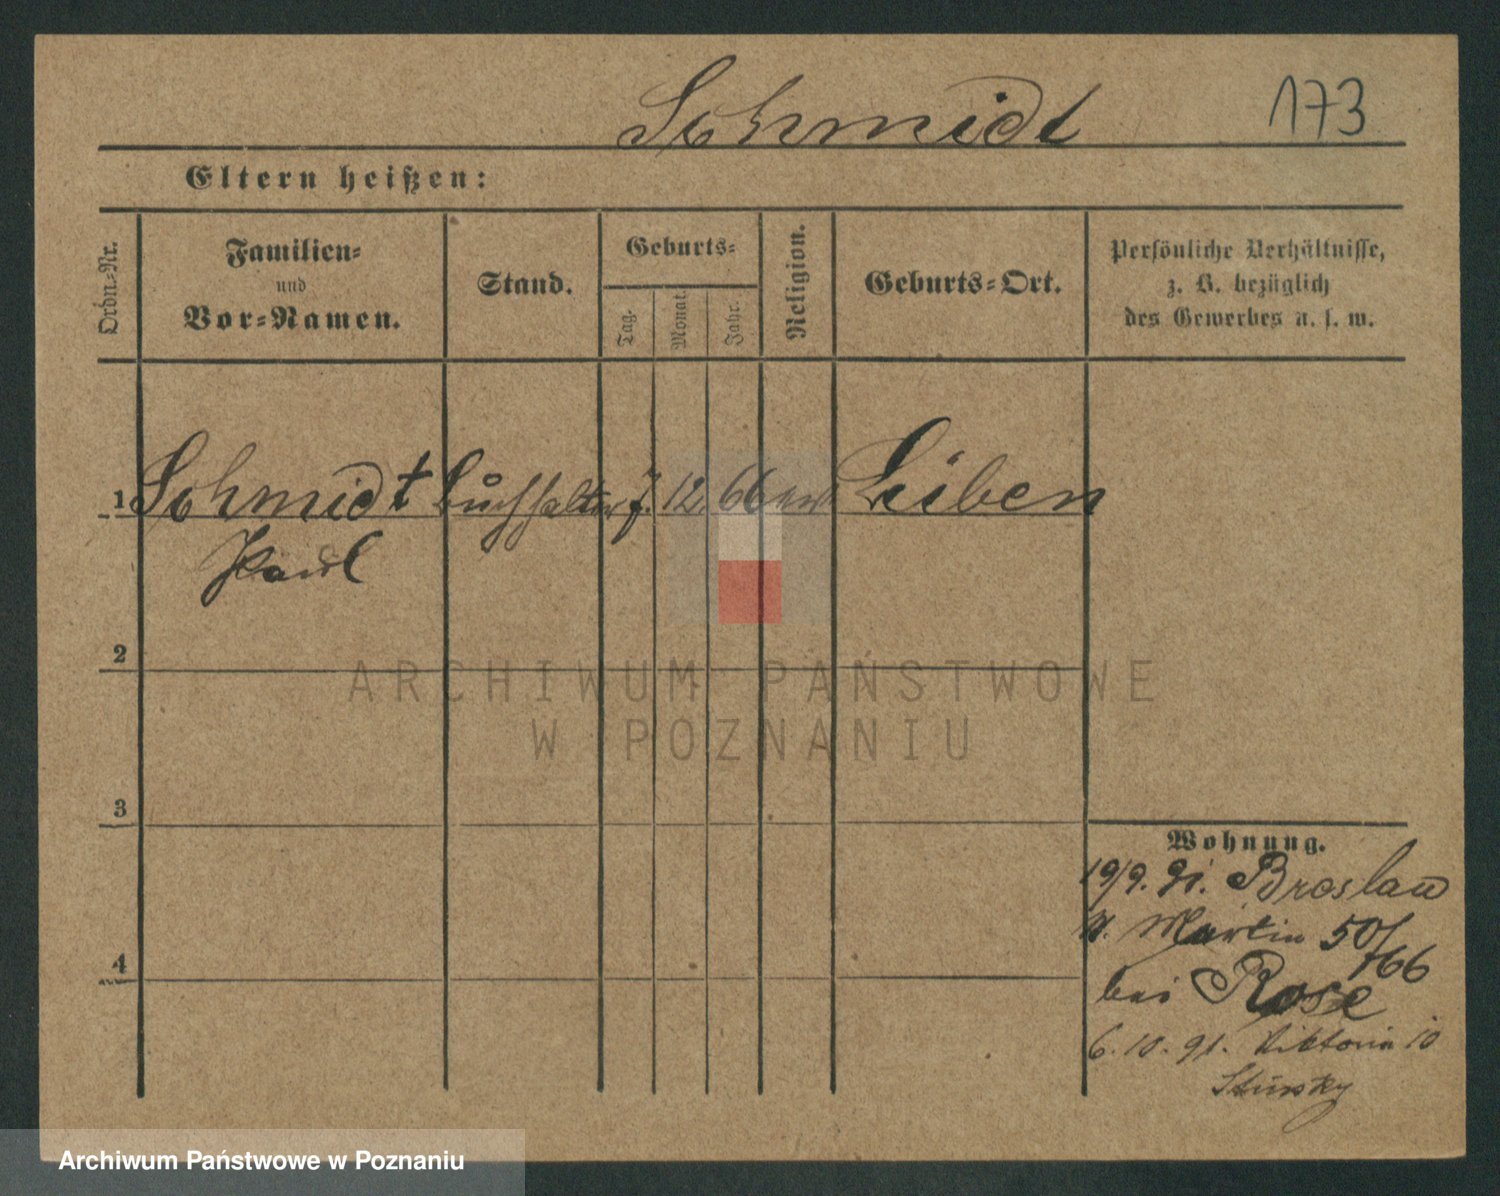 Schmidt 173
Eltern heißen:
Ordn=Nr.
Familien=
und
Vor=Namen.
Stand.
Geburts=
Tag.
Monat.
Jahr.
Religion.
Geburts=Ort.
Persönliche Verhältnisse,
z. B. bezüglich
des Gewerbes u. s. w.
1 Schmidt Buchhalter 7. 12. 66 ev
Paul
2
3
4
Wohnung.
19/9. 91. Breslau
St. Martin 50/
/66
bei Rose
6. 10. 91. Viktoria 10
ARCHIWUM PAŃSTWOWE
W POZNANIU
Archiwum Państwowe w Poznaniu